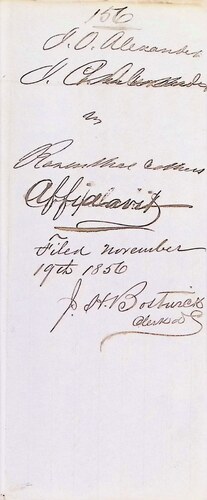 156
J. O. Alexander
J. C. Alexander
vs
others
Affidavit
Filed November
19th 1856
J. H. Bostwick
Clerk D C